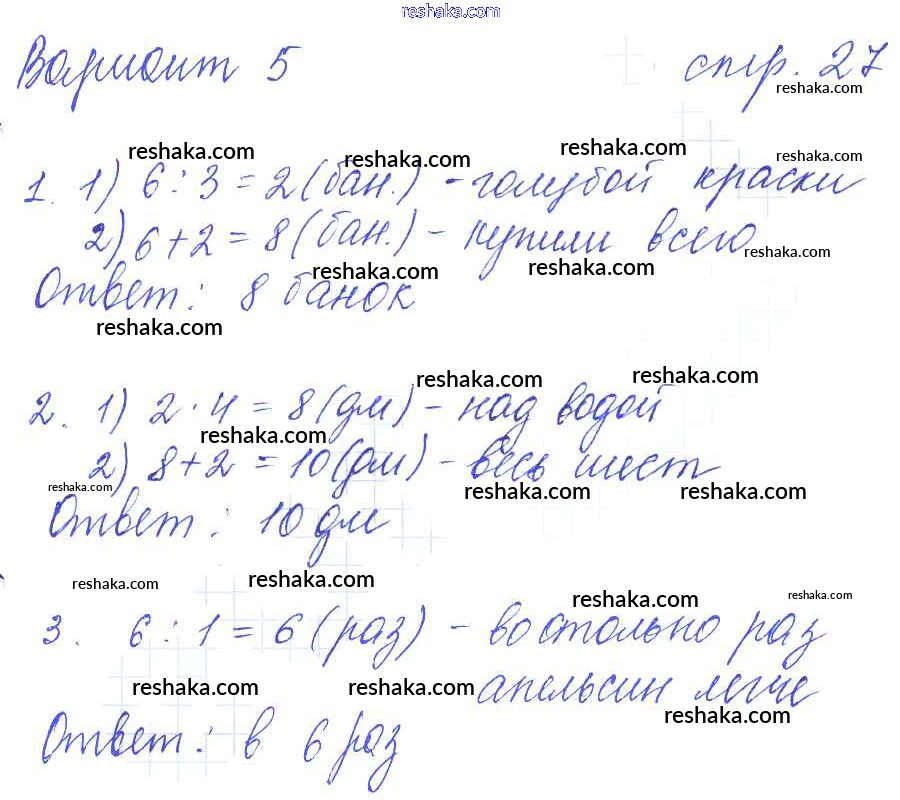 reshaka.com
Вариант 5 стр. 27
reshaka.com
reshaka.com reshaka.com reshaka.com reshaka.com
1. 1) 6 : 3 = 2 (бан.) - голубой краски
2) 6 + 2 = 8 (бан.) - купили всего
reshaka.com reshaka.com reshaka.com
Ответ: 8 банок
reshaka.com
reshaka.com reshaka.com
2. 1) 2 · 4 = 8 (дм) - над водой
reshaka.com
2) 8 + 2 = 10 (дм) - весь шест
reshaka.com reshaka.com reshaka.com
Ответ: 10 дм
reshaka.com reshaka.com reshaka.com reshaka.com
3. 6 : 1 = 6 (раз) - во столько раз
апельсин легче
reshaka.com reshaka.com reshaka.com
Ответ: в 6 раз